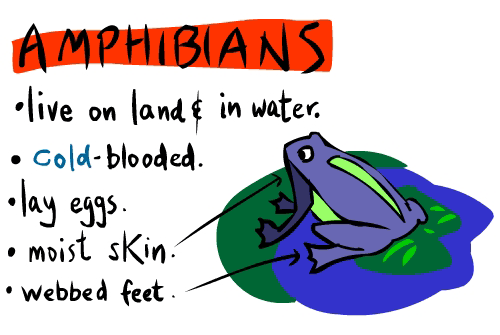 AMPHIBIANS
•live on land & in water.
• cold-blooded.
•lay eggs.
• moist skin.
• webbed feet.